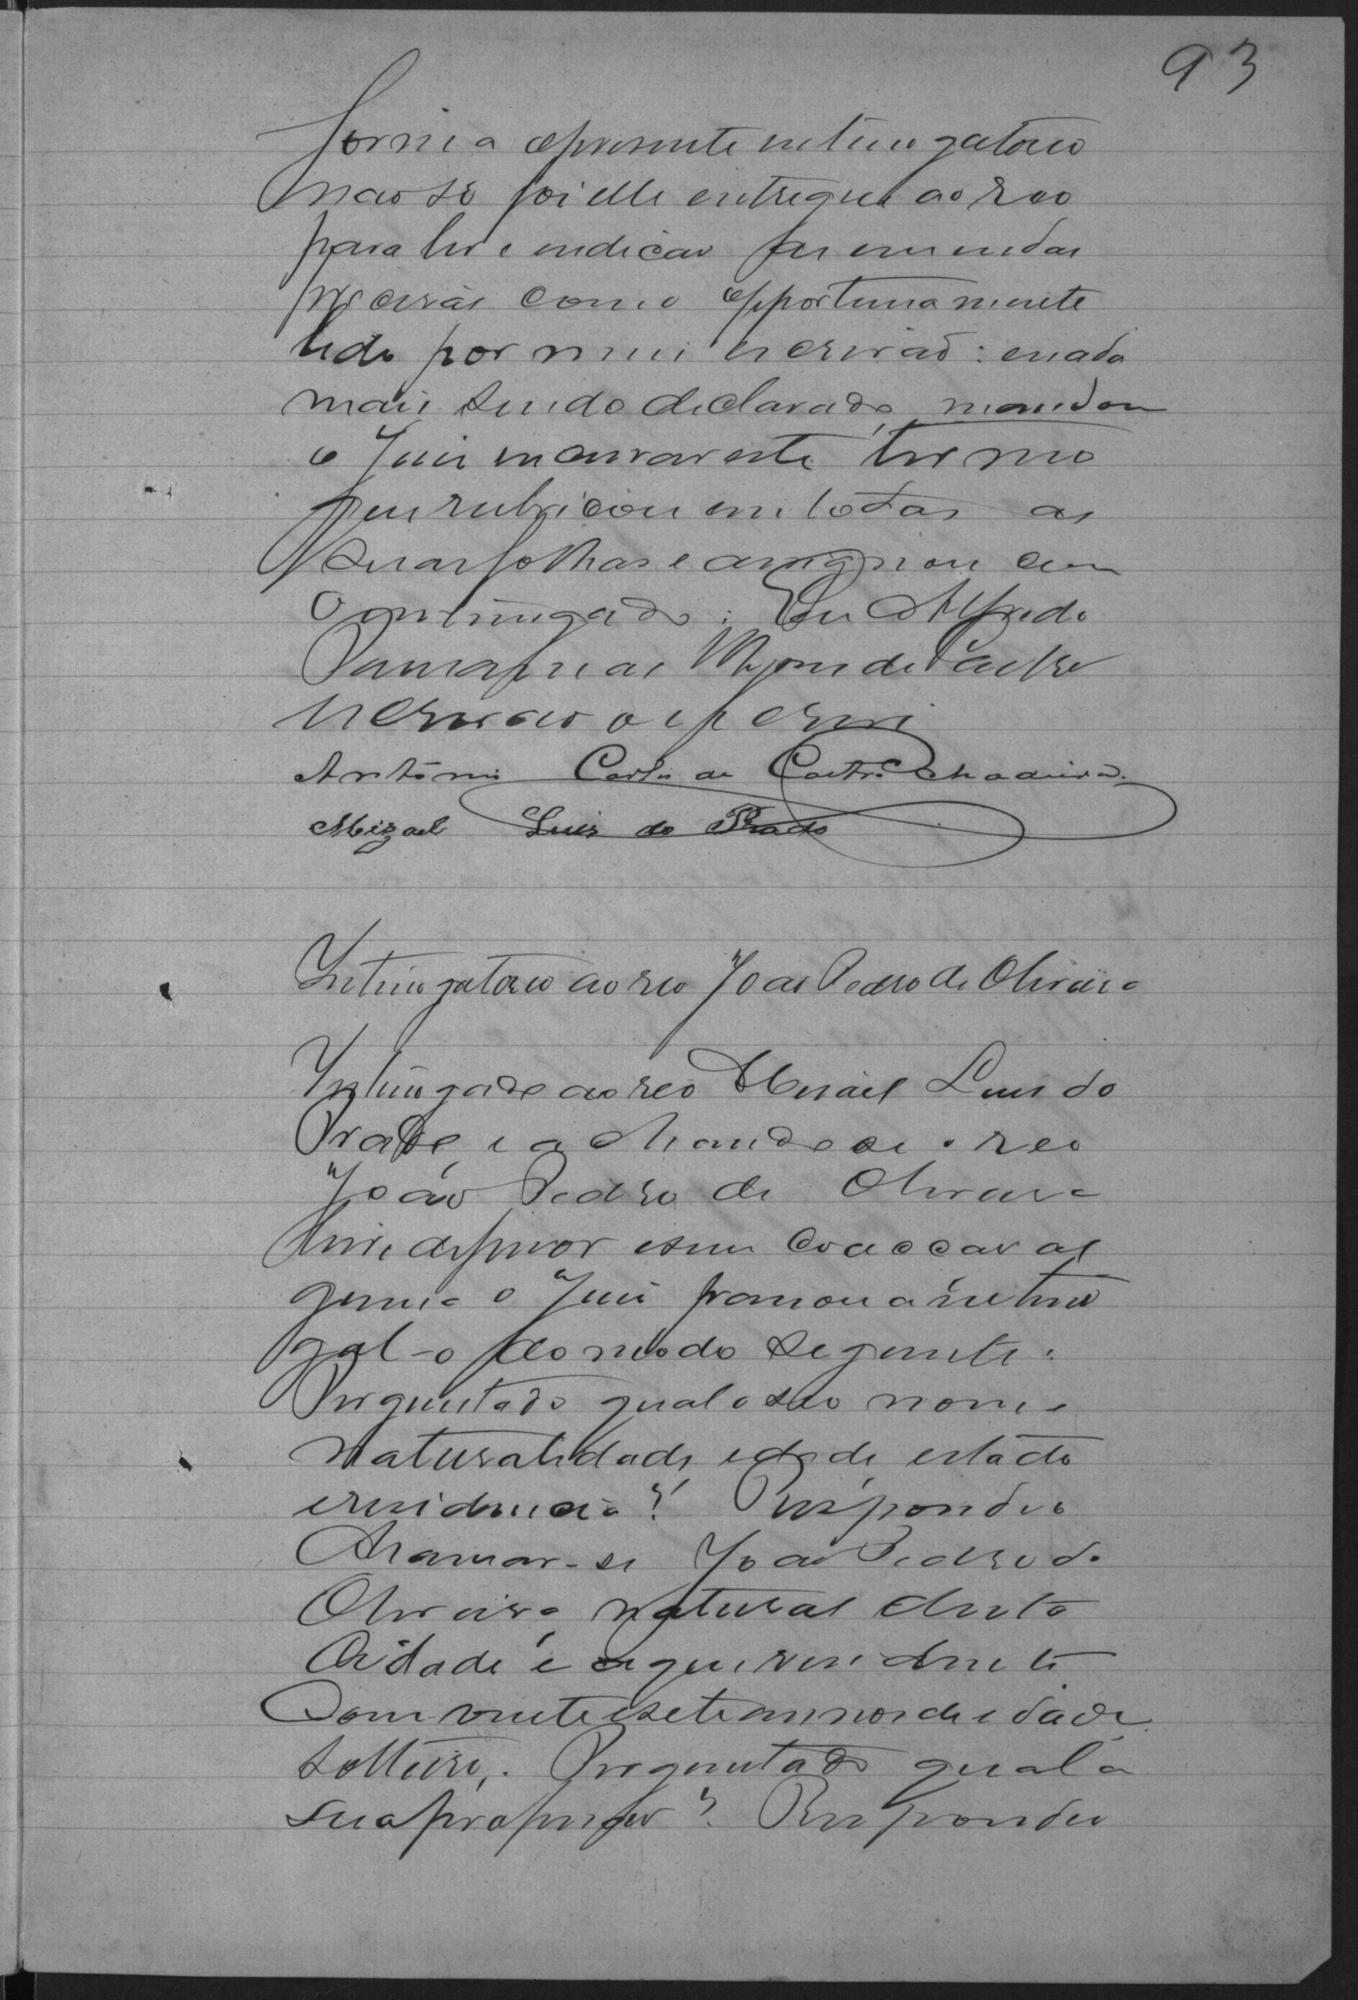 93
forma o presente interrogatorio
não só foi elle entregue ao reo
para ler e indicar as emendas
precisas como opportunamente
lido por mim escrivão: e nada
mais sendo declarado, mandou
o Juiz encerrar este termo
que rubricou em todas as
suas folhas e assignou com
o interrogado. Eu Alfredo
de
escrivão o escrevi
Antonio Carlos de Castro Madeira.
Mizael Luis do Prado
Interrogatorio ao reo João Pedro de Oliveira
Interrogado ao reo Misael Luis do
Prado, e achando se o reo
João Pedro de Oliveira
livre de ferros e sem coacção al
guma o Juiz passou a interro
gal-o do modo seguinte:
Perguntado qual o seu nome
naturalidade, edade, estado
e residencia? Respondeo
chamar-se João Pedro de
Oliveira, natural desta
Cidade e aqui residente
com vinte e sete annos de idade
solteiro. Perguntado qual a
sua profissão? Respondeu